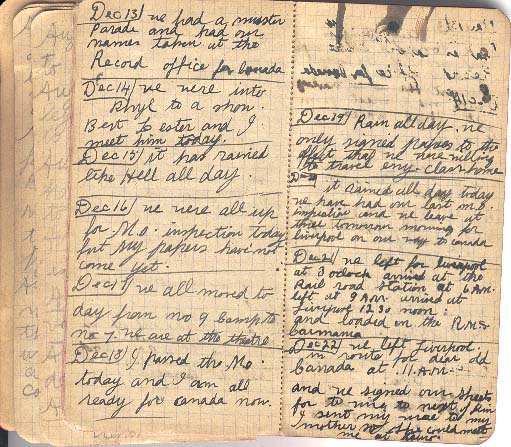 Dec 13/ we had a muster
Parade and had our
names taken at the
Record office for Canada
Dec 14/ we were into
Rhyl to a show.
Bert Lester and I
meet him today.
Dec 15/ it has rained
like Hell all day.
Dec 16/ we were all up
for M.O. inspection today
but my papers have not
come yet.
Dec 17 we all moved to
day from no 9 Camp to
no 7. we are at the theatre
Dec 18/ I passed the M.O.
today and I am all
ready for Canada now.
Dec 19/ Rain all day. we
only signed papers to the
effect that we were willing
to travel any class home
it rained all day today
we have had our last M.O.
inspection and we leave at
three tomorrow morning for
liverpool on our way to canada
Dec 21/ we left for liverpool
at 3 oclock arrived at the
Rail road station at 6 A.M.
left at 9 A.M. arrived at
Liverpool 12.30 noon:
and loaded on the R.M.S.
Carmania
Dec 22/ we left Liverpool.
in route for dear old
Canada at 11. A.M.
and we signed our sheets
for to wire to next of kin
I sent my wire to my
mother so she could meet
me at